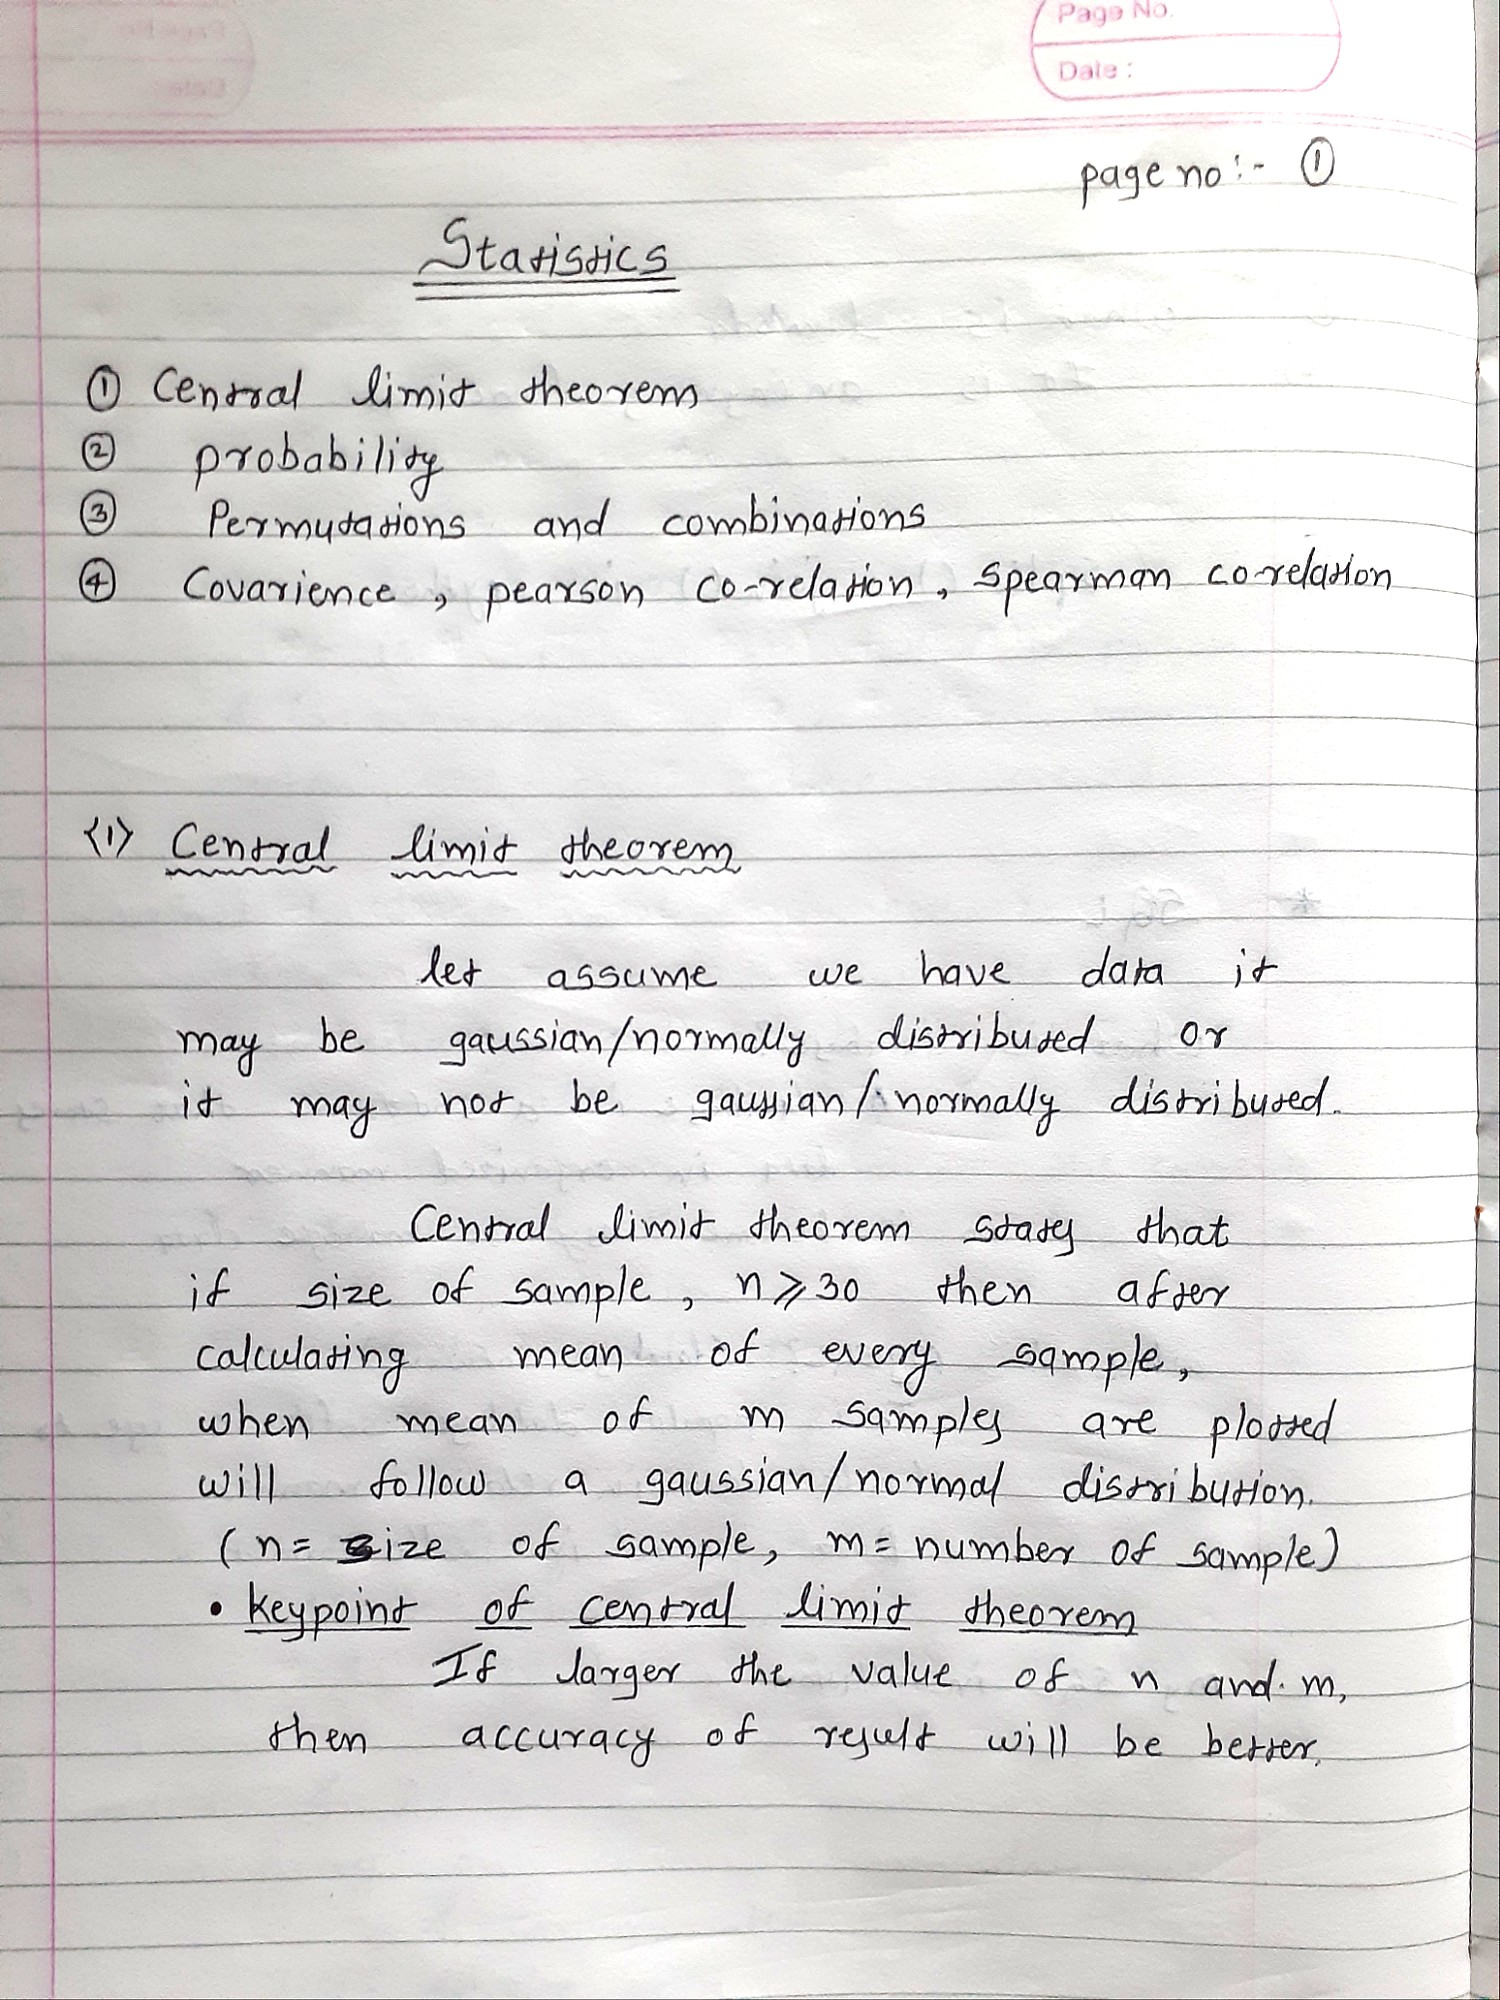 Page No.
Date :
page no :- ①
Statistics
① Central limit theorem
② probability
③ Permutations and combinations
④ Covarience , pearson co-relation , spearman co-relation
<1> Central limit theorem
let assume we have data it
may be gaussian/normally distributed or
it may not be gaussian/normally distributed.
Central limit theorem states that
if size of sample , n ⩾ 30 then after
calculating mean of every sample,
when mean of m samples are plotted
will follow a gaussian/normal distribution.
( n = size of sample, m = number of sample)
• keypoint of central limit theorem
If larger the value of n and m,
then accuracy of result will be better.